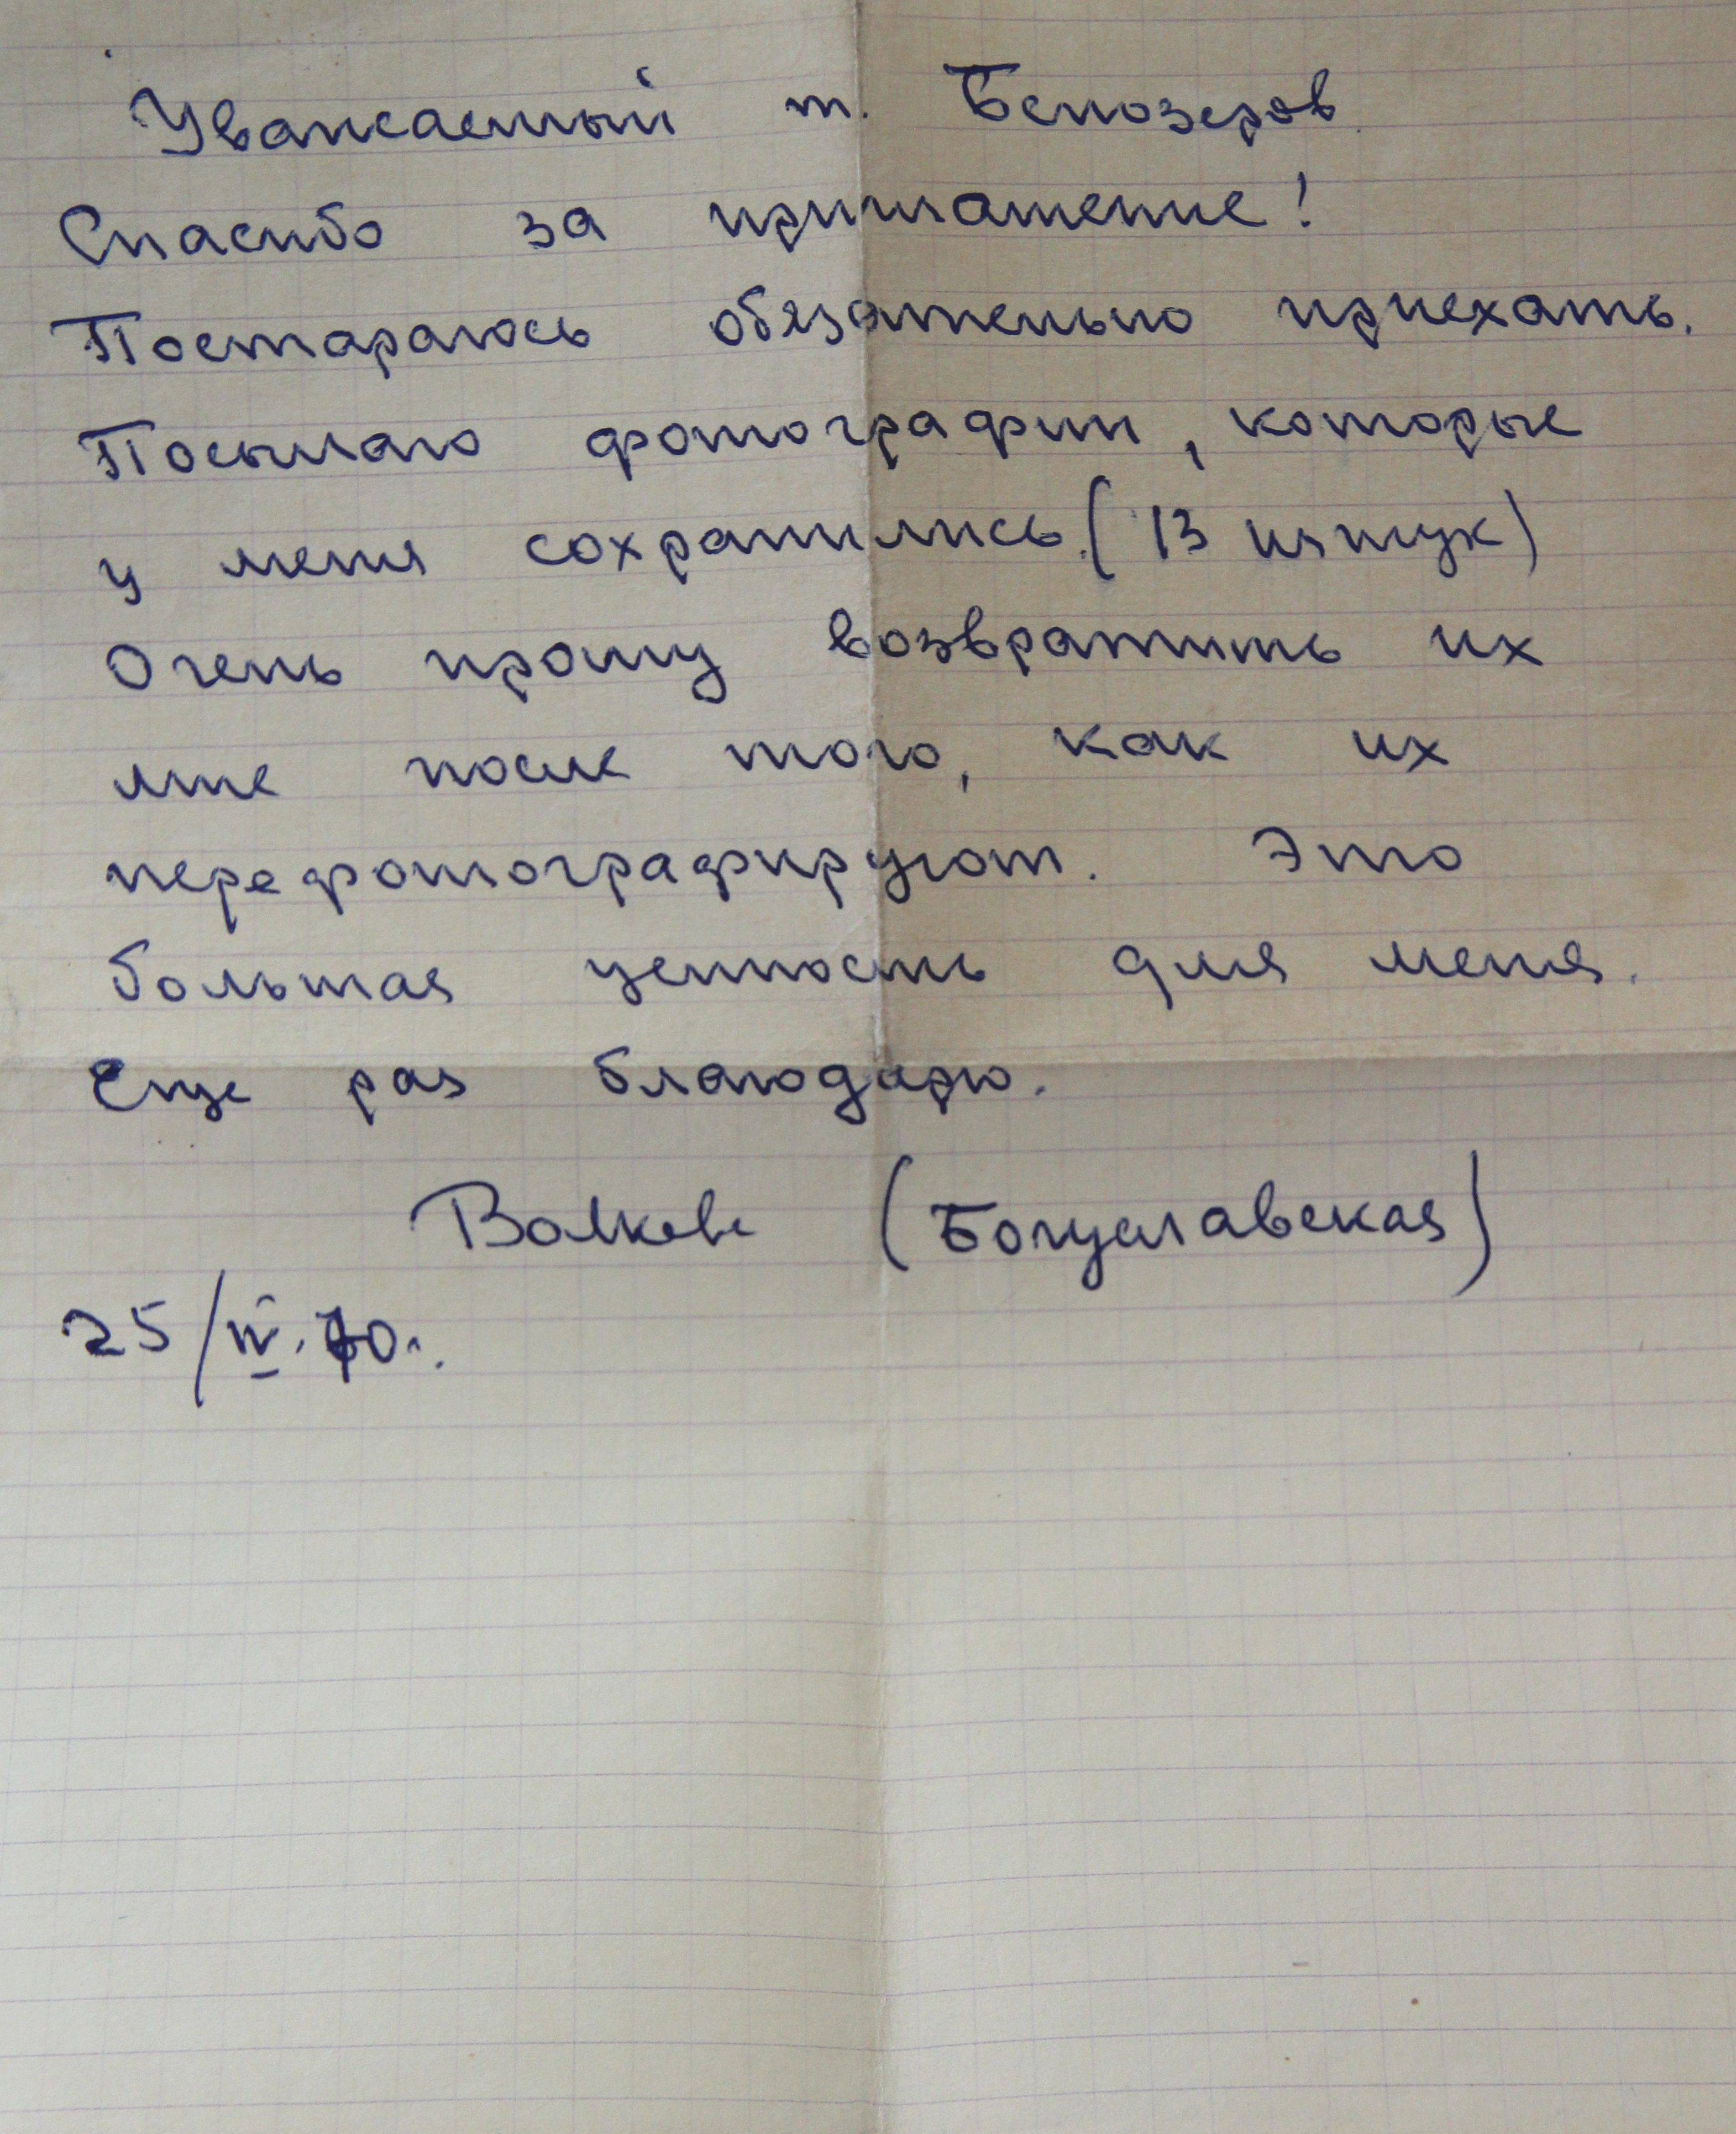 Уважаемый т. Белозеров.
Спасибо за приглашение!
Постараюсь обязательно приехать.
Посылаю фотографии, которые
у меня сохранились. (13 штук)
Очень прошу возвратить их
мне после того, как их
перефотографируют. Это
большая ценность для меня.
Еще раз благодарю.
Волкова (Богуславская)
25/IV.70г.